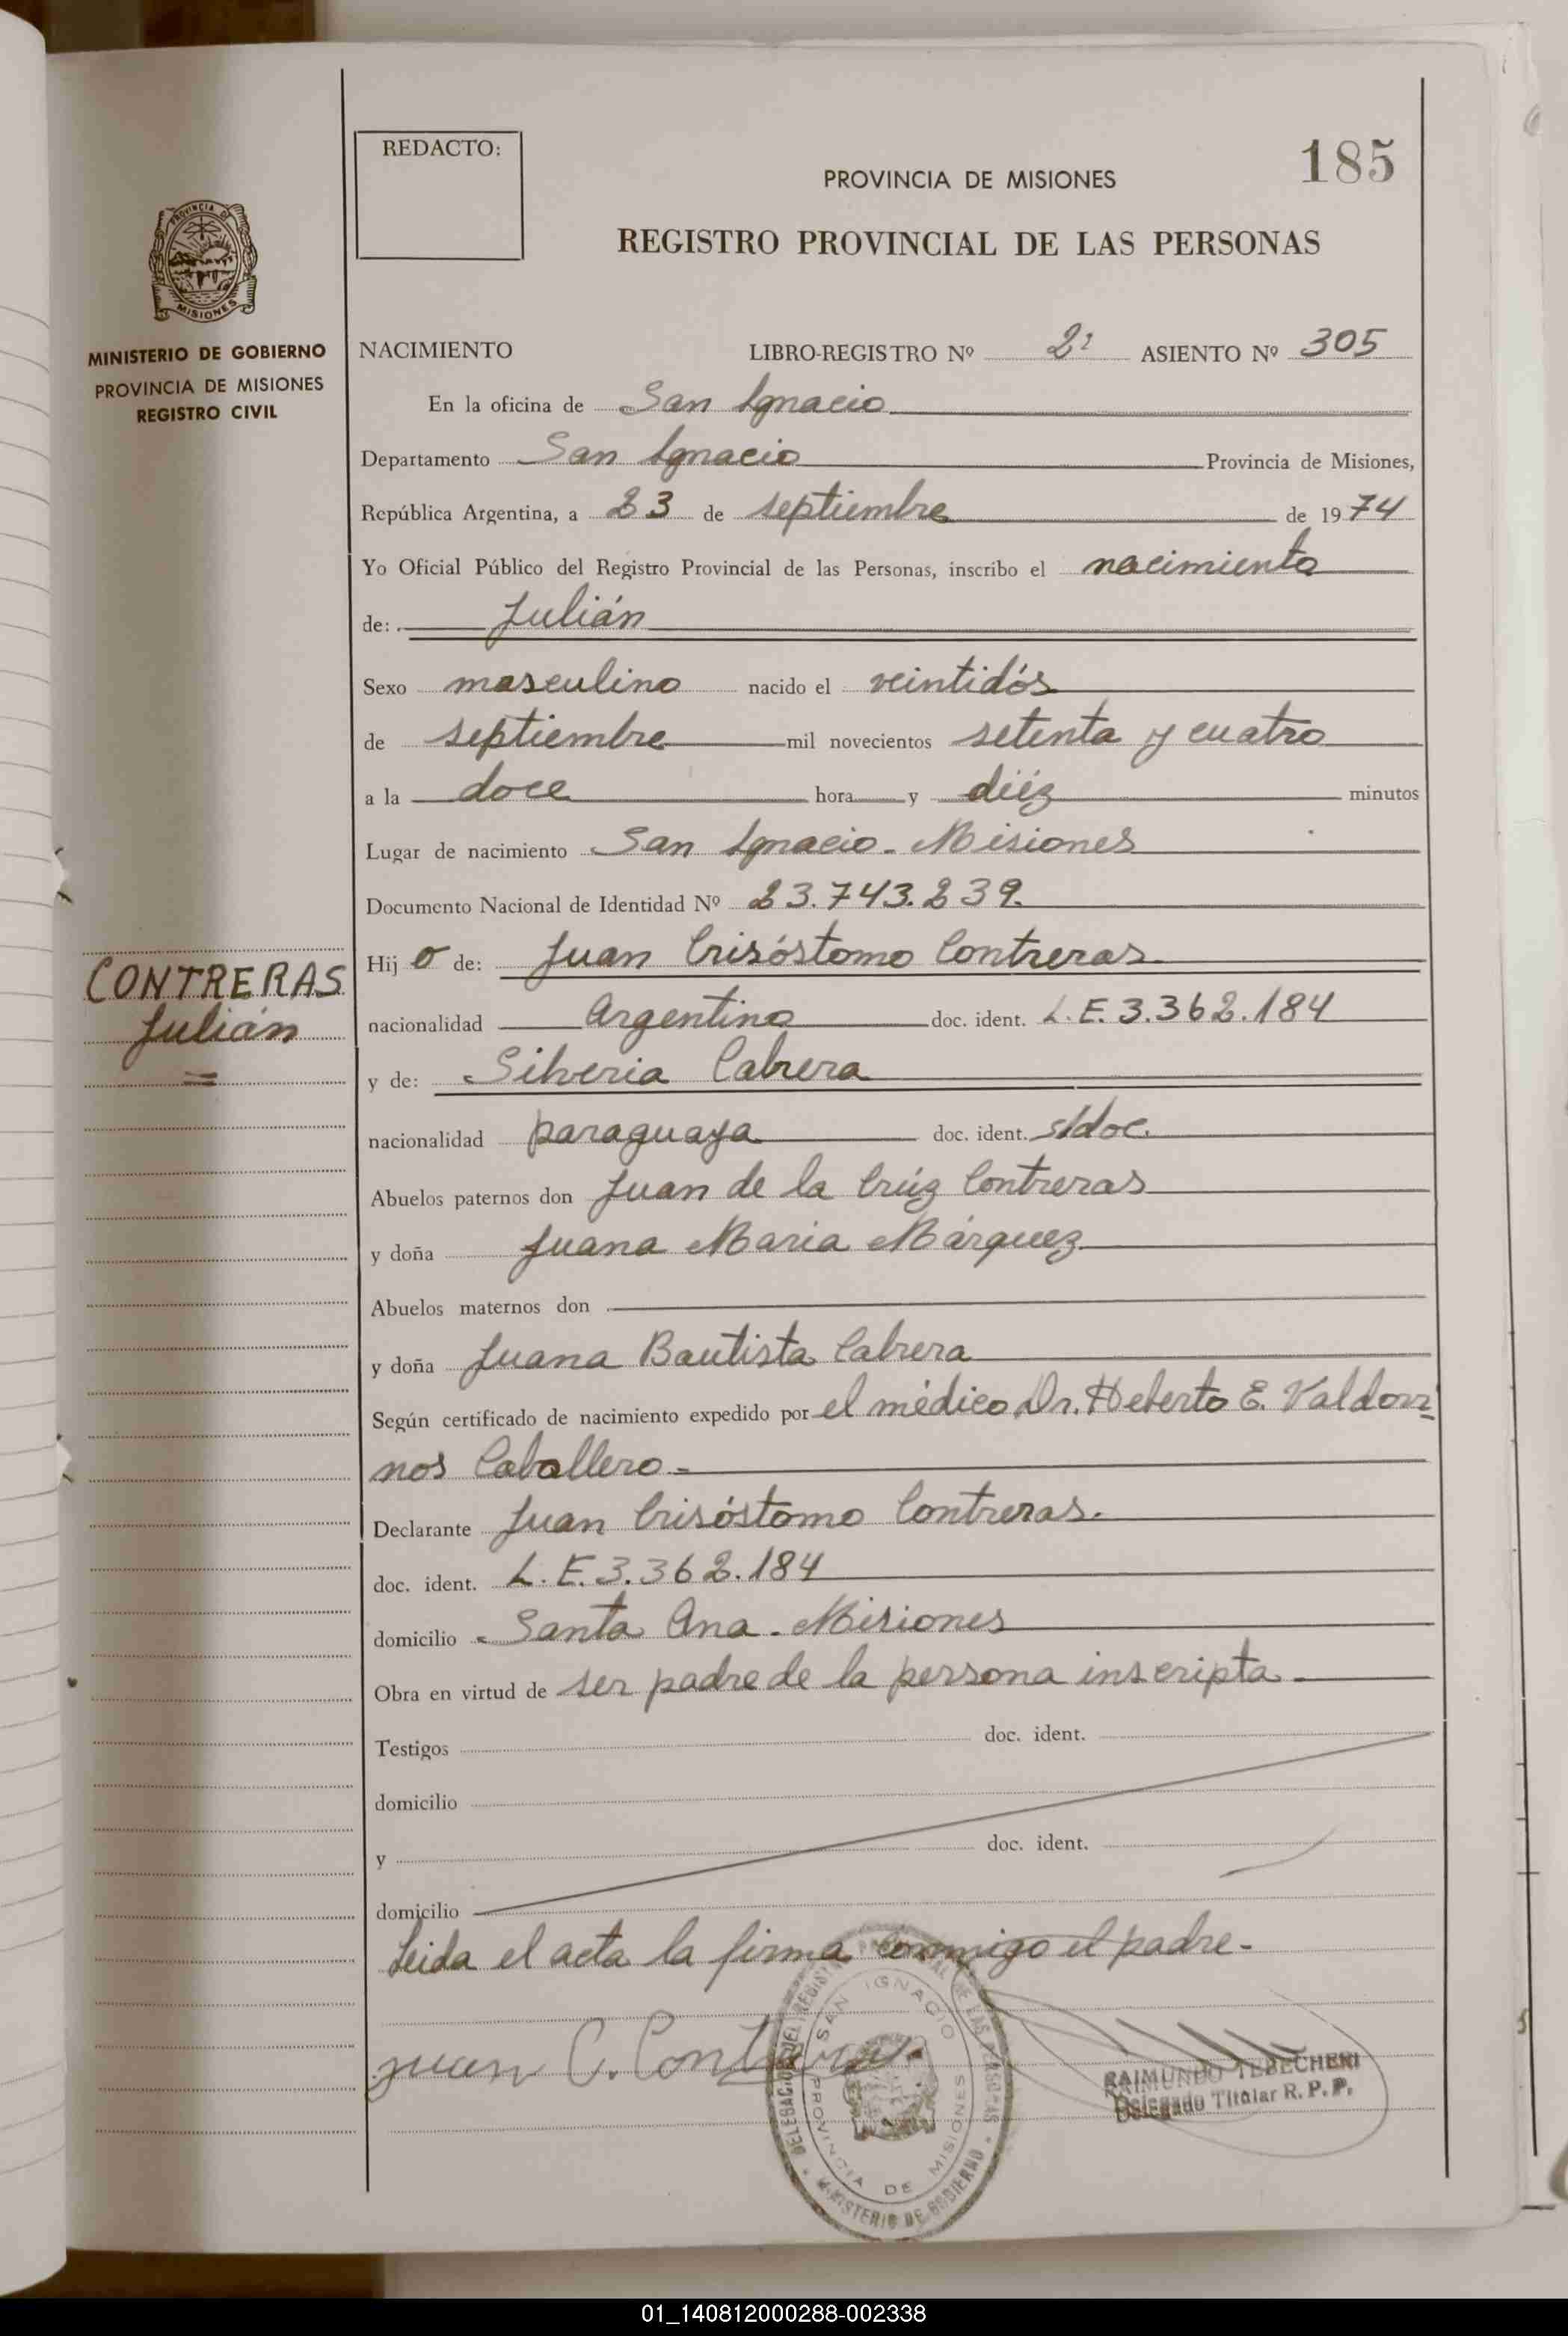 REDACTO:
185
PROVINCIA DE MISIONES
REGISTRO PROVINCIAL DE LAS PERSONAS
PROVINCIA DE
MISIONES
MINISTERIO DE GOBIERNO
PROVINCIA DE MISIONES
REGISTRO CIVIL
NACIMIENTO LIBRO-REGISTRO Nº 2º ASIENTO Nº 305
En la oficina de San Ignacio
Departamento San Ignacio Provincia de Misiones,
República Argentina, a 23 de septiembre de 1974
Yo Oficial Público del Registro Provincial de las Personas, inscribo el nacimiento
de: Julián
Sexo masculino nacido el veintidós
de septiembre mil novecientos setenta y cuatro
a la doce hora y diéz minutos
Lugar de nacimiento San Ignacio - Misiones
Documento Nacional de Identidad Nº 23.743.239.
Hijo de: Juan Crisóstomo Contreras
CONTRERAS
Julián
nacionalidad Argentina doc. ident. L.E. 3.362.184
y de: Silveria Cabrera
nacionalidad paraguaya doc. ident. s/doc.
Abuelos paternos don Juan de la Crúz Contreras
y doña Juana Maria Márquez
Abuelos maternos don
y doña Juana Bautista Cabrera
Según certificado de nacimiento expedido por el médico Dr. Heberto E. Valdovi
nos Caballero.-
Declarante Juan Crisóstomo Contreras.
doc. ident. L.E. 3.362.184
domicilio Santa Ana - Misiones
Obra en virtud de ser padre de la persona inscripta -
Testigos doc. ident.
domicilio
y doc. ident.
domicilio
Leida el acta la firma conmigo el padre -
Juan C. Contreras
DELEGACION DEL REGISTRO PROVINCIAL DE LAS PERSONAS
SAN IGNACIO
PROVINCIA DE MISIONES
MINISTERIO DE GOBIERNO
RAIMUNDO TEBECHERI
Delegado Titular R. P. P.
01_140812000288-002338